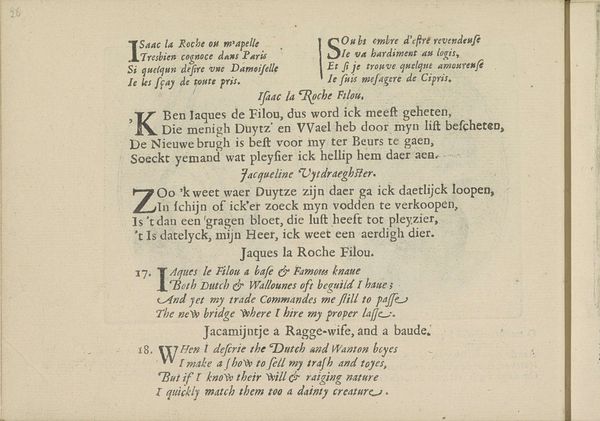 26
ISaac la Roche on m'apelle
Tresbien cognoce dans Paris
Si quelqun desire une Damoiselle
Ie les sçay de toute pris.
SOubs ombre d'estre revendeuse
Ie va hardiment au logis,
Et si je trouve quelque amoureuse
Ie suis mesagere de Cipris.
Isaac la Roche Filou.
'K Ben Iaques de Filou, dus word ick meest geheten,
Die menigh Duytz' en VVael heb door myn list bescheten,
De Nieuwe brugh is best voor my ter Beurs te gaen,
Soeckt yemand wat pleysier ick hellip hem daer aen.
Jacqueline Vytdraeghster.
ZOo 'k weet waer Duytze zijn daer ga ick daetlijck loopen,
In schijn of ick'er zoeck myn vodden te verkoopen,
Is 't dan een 'gragen bloet, die lust heeft tot pleyzier,
't Is datelyck, mijn Heer, ick weet een aerdigh dier.
Jaques la Roche Filou.
17. IAques le Filou a base & Famous knaue
Both Dutch & Wallounes oft beguild I haue;
And yet my trade Commandes me still to passe
The new bridge where I hire my proper lasse.
Jacamijntje a Ragge-wife, and a baude.
18. WHen I descrie the Dutch and Wanton boyes
I make a show to sell my trash and toyes,
But if I know their will & raiging nature
I quickly match them too a dainty creature.